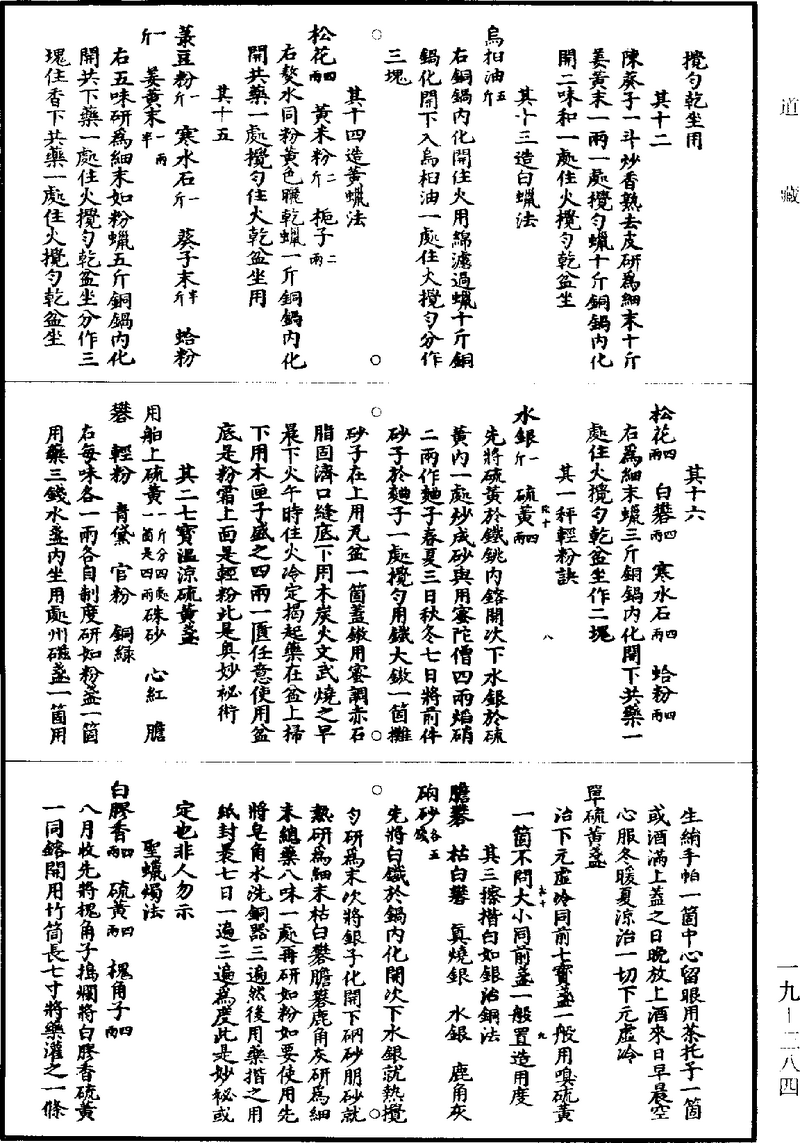 道藏
攪勻乾坐用
其十二
陳葵子一斗炒香熟去皮研爲細末十斤
姜黃末一兩一處攪勻蠟十斤銅鍋內化
開二味和一處住火攪勻乾盆坐
其十三造白蠟法
烏桕油五斤
右銅鍋內化開住火用綿濾過蠟十斤銅
鍋化開下入烏桕油一處住火攪勻分作
三塊
其十四造黃蠟法
松花四兩 黃米粉二斤 梔子二兩
右熬水同粉黃色曬乾蠟一斤銅鍋內化
開共藥一處攪勻住火乾盆坐用
其十五
菉豆粉一斤 寒水石一斤 葵子末半斤 蛤粉
一斤 姜黃末一兩半
右五味研爲細末如粉蠟五斤銅鍋內化
開共下藥一處住火攪勻乾盆坐分作三
塊住香下共藥一處住火攪勻乾盆坐
其十六
松花四兩 白礬四兩 寒水石四兩 蛤粉四兩
右爲細末蠟三斤銅鍋內化開下共藥一
處住火攪勻乾盆坐作二塊
其一秤輕粉訣
水銀一斤 硫黃四兩
先將硫黃於鐵銚內鎔開次下水銀於硫
黃內一處炒成砂與用蜜陀僧四兩焰硝
二兩作麯子春夏三日秋冬七日將前件
砂子於麯子一處攪勻用鐵大鏊一箇攤
砂子在上用瓦盆一箇蓋鏊用蜜調赤石
脂固濟口縫底下用木炭火文武燒之早
晨下火午時住火冷定揭起藥在盆上掃
下用木匣子盛之四兩一匱任意使用盆
底是粉霜上面是輕粉此是奧妙祕術
其二七寶溫涼硫黃盞
用舶上硫黃一斤分四處一箇是四兩 硃砂 心紅 膽
礬 輕粉 青黛 官粉 銅綠
右每味各一兩各自制度研如粉盞一箇
用藥三錢水盞內坐用處州磁盞一箇用
生絹手帕一箇中心留眼用茶托子一箇
或酒滿上蓋之日晚放上酒來日早晨空
心服冬暖夏涼治一切下元虛冷
單硫黃盞
治下元虛冷同前七寶盞一般用嗅硫黃
一箇不問大小同前盞一般置造用度
其三擦揩白如銀治銅法
膽礬 枯白礬 真燒銀 水銀 鹿角灰
硇砂各五錢
先將白鐵於鍋內化開次下水銀就熱攪
勻研爲末次將銀子化開下硇砂朋砂就
熱研爲細末枯白礬膽礬鹿角灰研爲細
末總藥八味一處再研如粉如要使用先
將皂角水洗銅器三遍然後用藥揩之用
紙封裹七日一遍三遍爲度此是妙祕或
定也非人勿示
聖蠟燭法
白膠香四兩 硫黃四兩 槐角子四兩
八月收先將槐角子搗爛將白膠香硫黃
一同鎔開用竹筒長七寸將藥灌之一條
一九－二八四